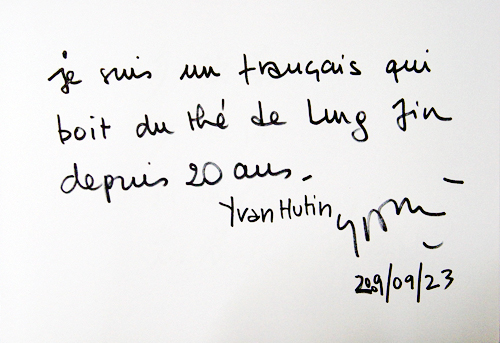 je suis un français qui
boit du thé de Lung Jin
depuis 20 ans.
Yvan Hutin
2009/09/23